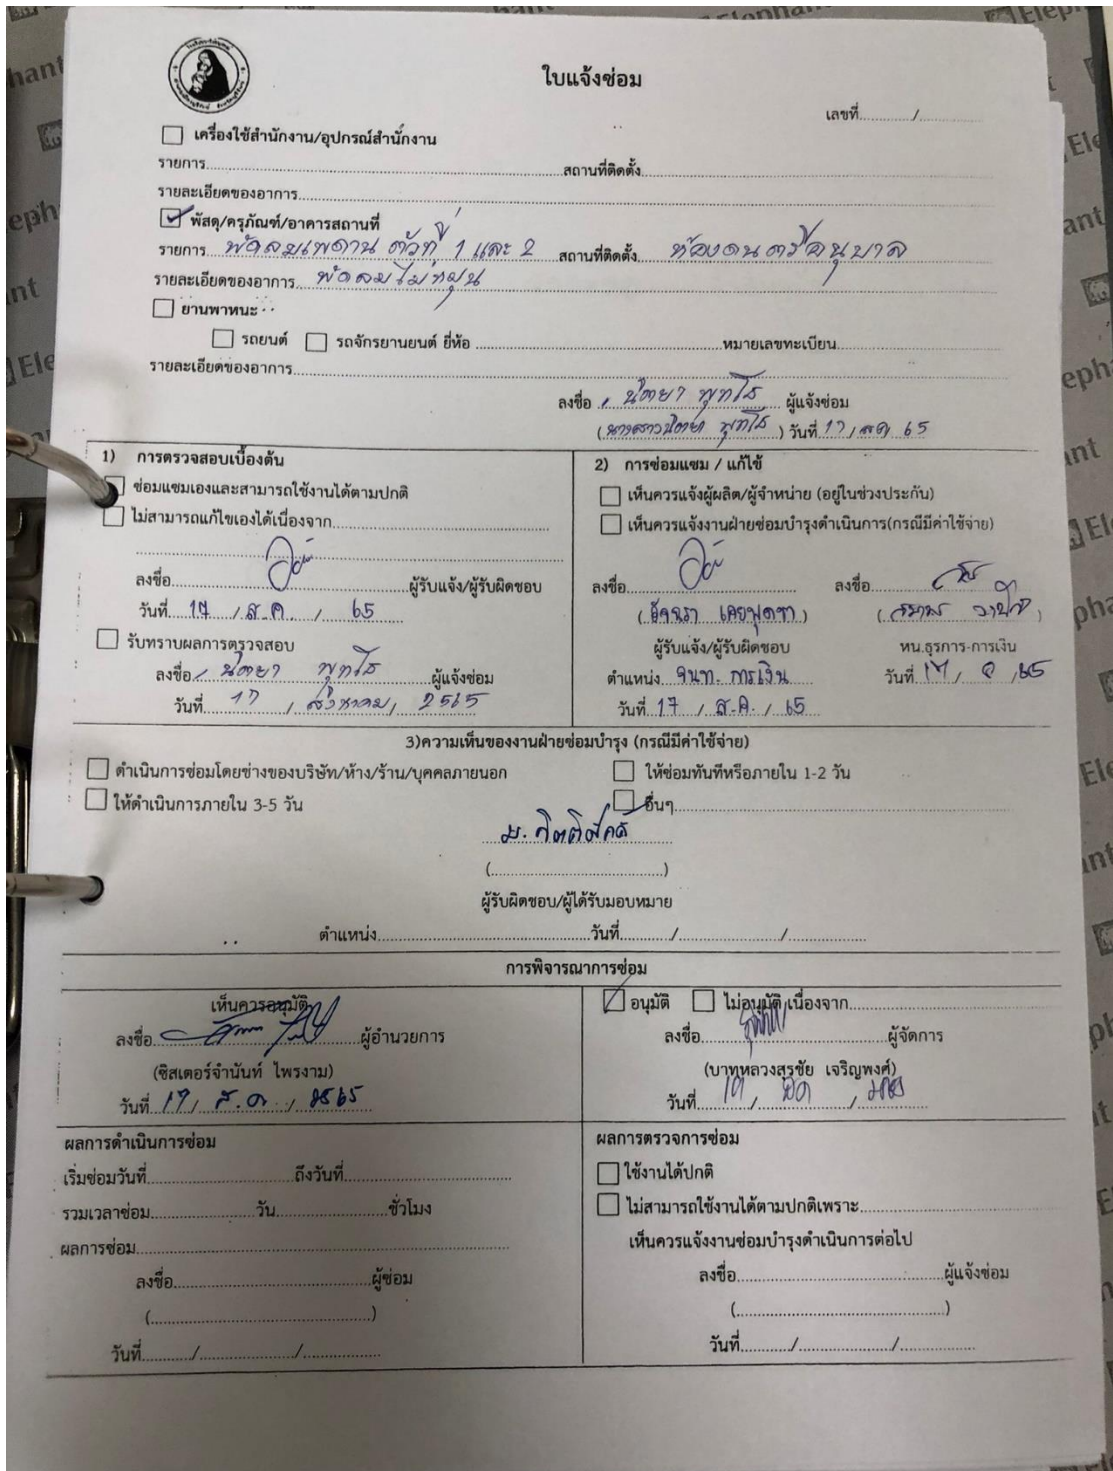 ใบแจ้งซ่อม
เลขที่............/................
เครื่องใช้สำนักงาน/อุปกรณ์สำนักงาน
รายการ................สถานที่ติดตั้ง................
รายละเอียดของอาการ................
พัสดุ/ครุภัณฑ์/อาคารสถานที่
รายการ พัดลมเพดาน ตัวที่ 1 และ 2 สถานที่ติดตั้ง ห้องดนตรีอนุบาล
รายละเอียดของอาการ พัดลมไม่หมุน
ยานพาหนะ
รถยนต์ รถจักรยานยนต์ ยี่ห้อ ................หมายเลขทะเบียน................
รายละเอียดของอาการ................
ลงชื่อ นิตยา พุทโธ ผู้แจ้งซ่อม
(นางสาวนิตยา พุทโธ) วันที่ 17 / สค / 65
1) การตรวจสอบเบื้องต้น
ซ่อมแซมเองและสามารถใช้งานได้ตามปกติ
ไม่สามารถแก้ไขเองได้เนื่องจาก................
ลงชื่อ................ผู้รับแจ้ง/ผู้รับผิดชอบ
วันที่ 17 / ส.ค. / 65
รับทราบผลการตรวจสอบ
ลงชื่อ นิตยา พุทโธ ผู้แจ้งซ่อม
วันที่ 17 / สิงหาคม / 2565
2) การซ่อมแซม / แก้ไข้
เห็นควรแจ้งผู้ผลิต/ผู้จำหน่าย (อยู่ในช่วงประกัน)
เห็นควรแจ้งงานฝ่ายซ่อมบำรุงดำเนินการ(กรณีมีค่าใช้จ่าย)
ลงชื่อ................ ลงชื่อ................
ผู้รับแจ้ง/ผู้รับผิดชอบ หน.ธุรการ-การเงิน
ตำแหน่ง จนท. การเงิน วันที่ 17 / / 65
วันที่ 17 / ส.ค. / 65
3)ความเห็นของงานฝ่ายซ่อมบำรุง (กรณีมีค่าใช้จ่าย)
ดำเนินการซ่อมโดยช่างของบริษัท/ห้าง/ร้าน/บุคคลภายนอก ให้ซ่อมทันทีหรือภายใน 1-2 วัน
ให้ดำเนินการภายใน 3-5 วัน อื่นๆ................
ม. กิตติศักดิ์
(................)
ผู้รับผิดชอบ/ผู้ได้รับมอบหมาย
ตำแหน่ง................วันที่........./................/................
การพิจารณาการซ่อม
เห็นควรอนุมัติ
ลงชื่อ................ผู้อำนวยการ
(ซิสเตอร์จำนันท์ ไพรงาม)
วันที่ 17 / ส.ค. / 2565
อนุมัติ ไม่อนุมัติ เนื่องจาก................
ลงชื่อ................ผู้จัดการ
(บาทหลวงสุรชัย เจริญพงศ์)
วันที่ 17 / /
ผลการดำเนินการซ่อม
เริ่มซ่อมวันที่................ถึงวันที่................
รวมเวลาซ่อม................วัน................ชั่วโมง
ผลการซ่อม................
ลงชื่อ................ผู้ซ่อม
(................)
วันที่........./................/................
ผลการตรวจการซ่อม
ใช้งานได้ปกติ
ไม่สามารถใช้งานได้ตามปกติเพราะ................
เห็นควรแจ้งงานซ่อมบำรุงดำเนินการต่อไป
ลงชื่อ................ผู้แจ้งซ่อม
(................)
วันที่........./................/................